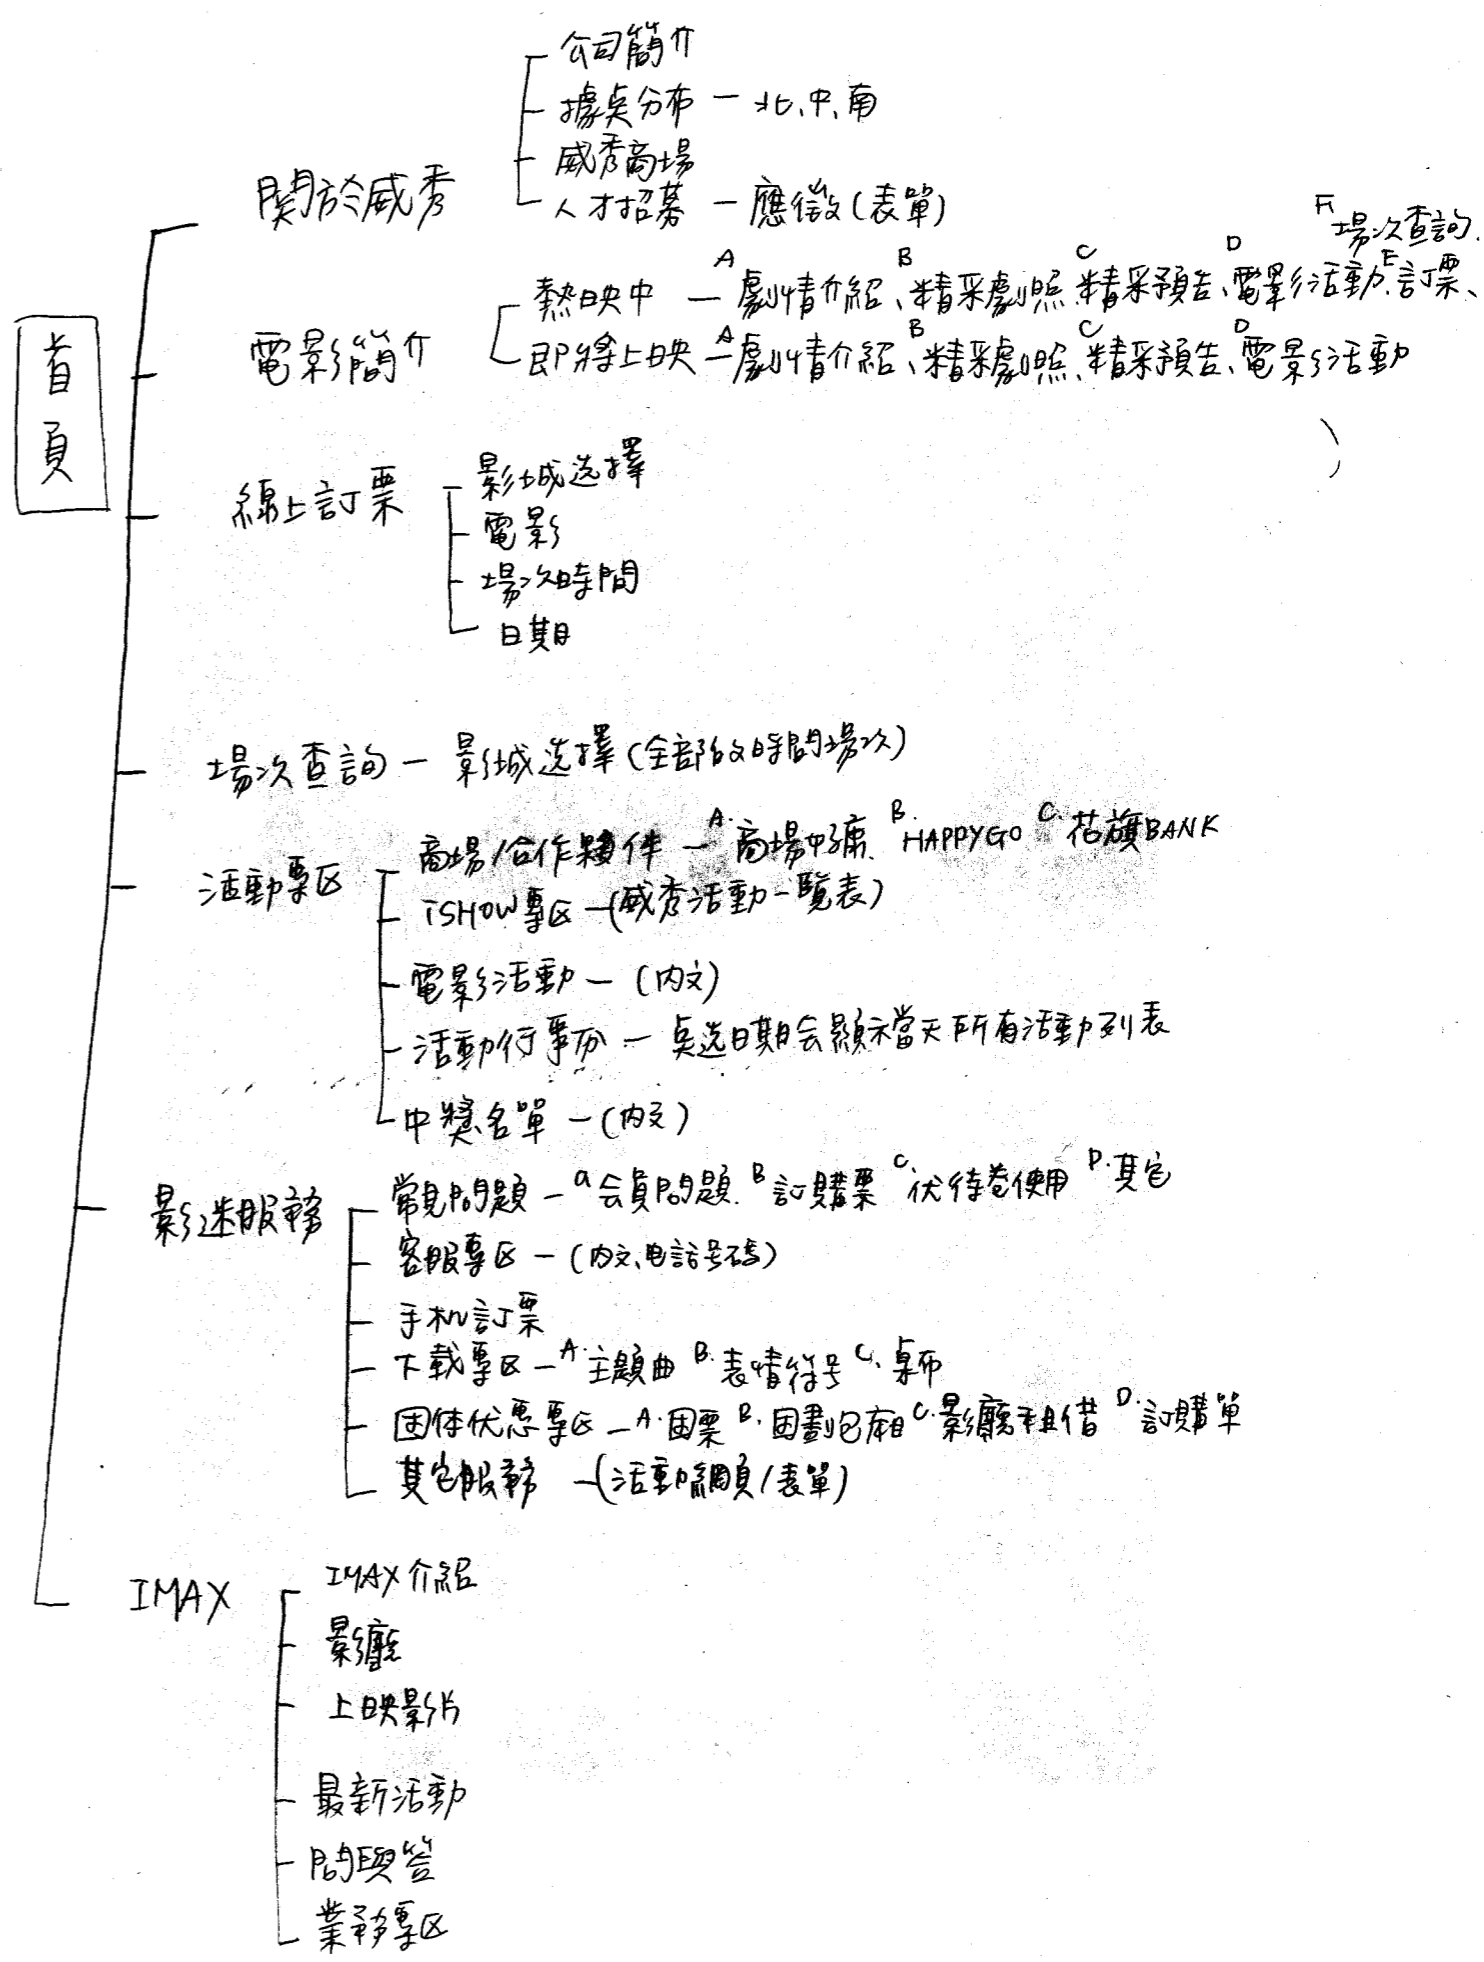 首頁
關於威秀
公司簡介
據奌分布 — 北、中、南
威秀商場
人才招募 — 應徵(表單)
電影簡介
熱映中 — A劇情介紹、B精采劇照、C精采預告、D電影活動、E訂票、F場次查詢.
即將上映 — A劇情介紹、B精采劇照、C精采預告、D電影活動
線上訂票
影城选擇
電影
場次時間
日期
場次查詢 — 影城选擇(全部的時間場次)
活動專区
商場/合作夥伴 — A.商場好康、B.HAPPYGO C.花旗BANK
iSHOW專区 — (威秀活動一覽表)
電影活動 — (内文)
活動行事历 — 奌选日期会顯示當天所有活動列表
中獎名單 — (内文)
影迷服務
常見問題 — a会員問題. B訂購票 C.优待卷使用 D.其它
客服專区 — (内文、电話号碼)
手机訂票
下載專区 — A.主題曲 B.表情符号 C.桌布
团体优惠專区 — A.团票 B.团劃包廂 C.影廳租借 D.訂購單
其它服務 — (活動網頁/表單)
IMAX
IMAX介紹
影廳
上映影片
最新活動
問與答
業務專区